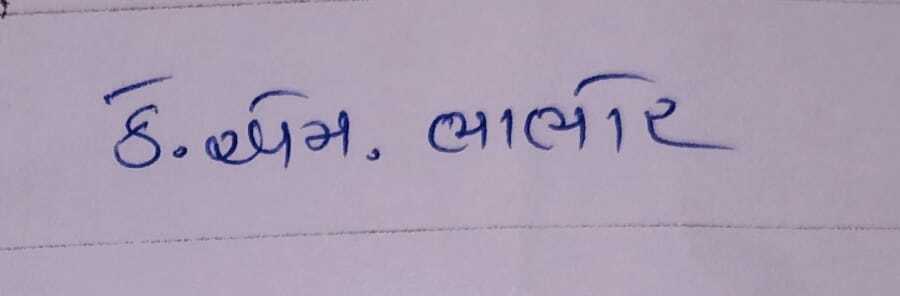 કે.એમ. ભાભોર